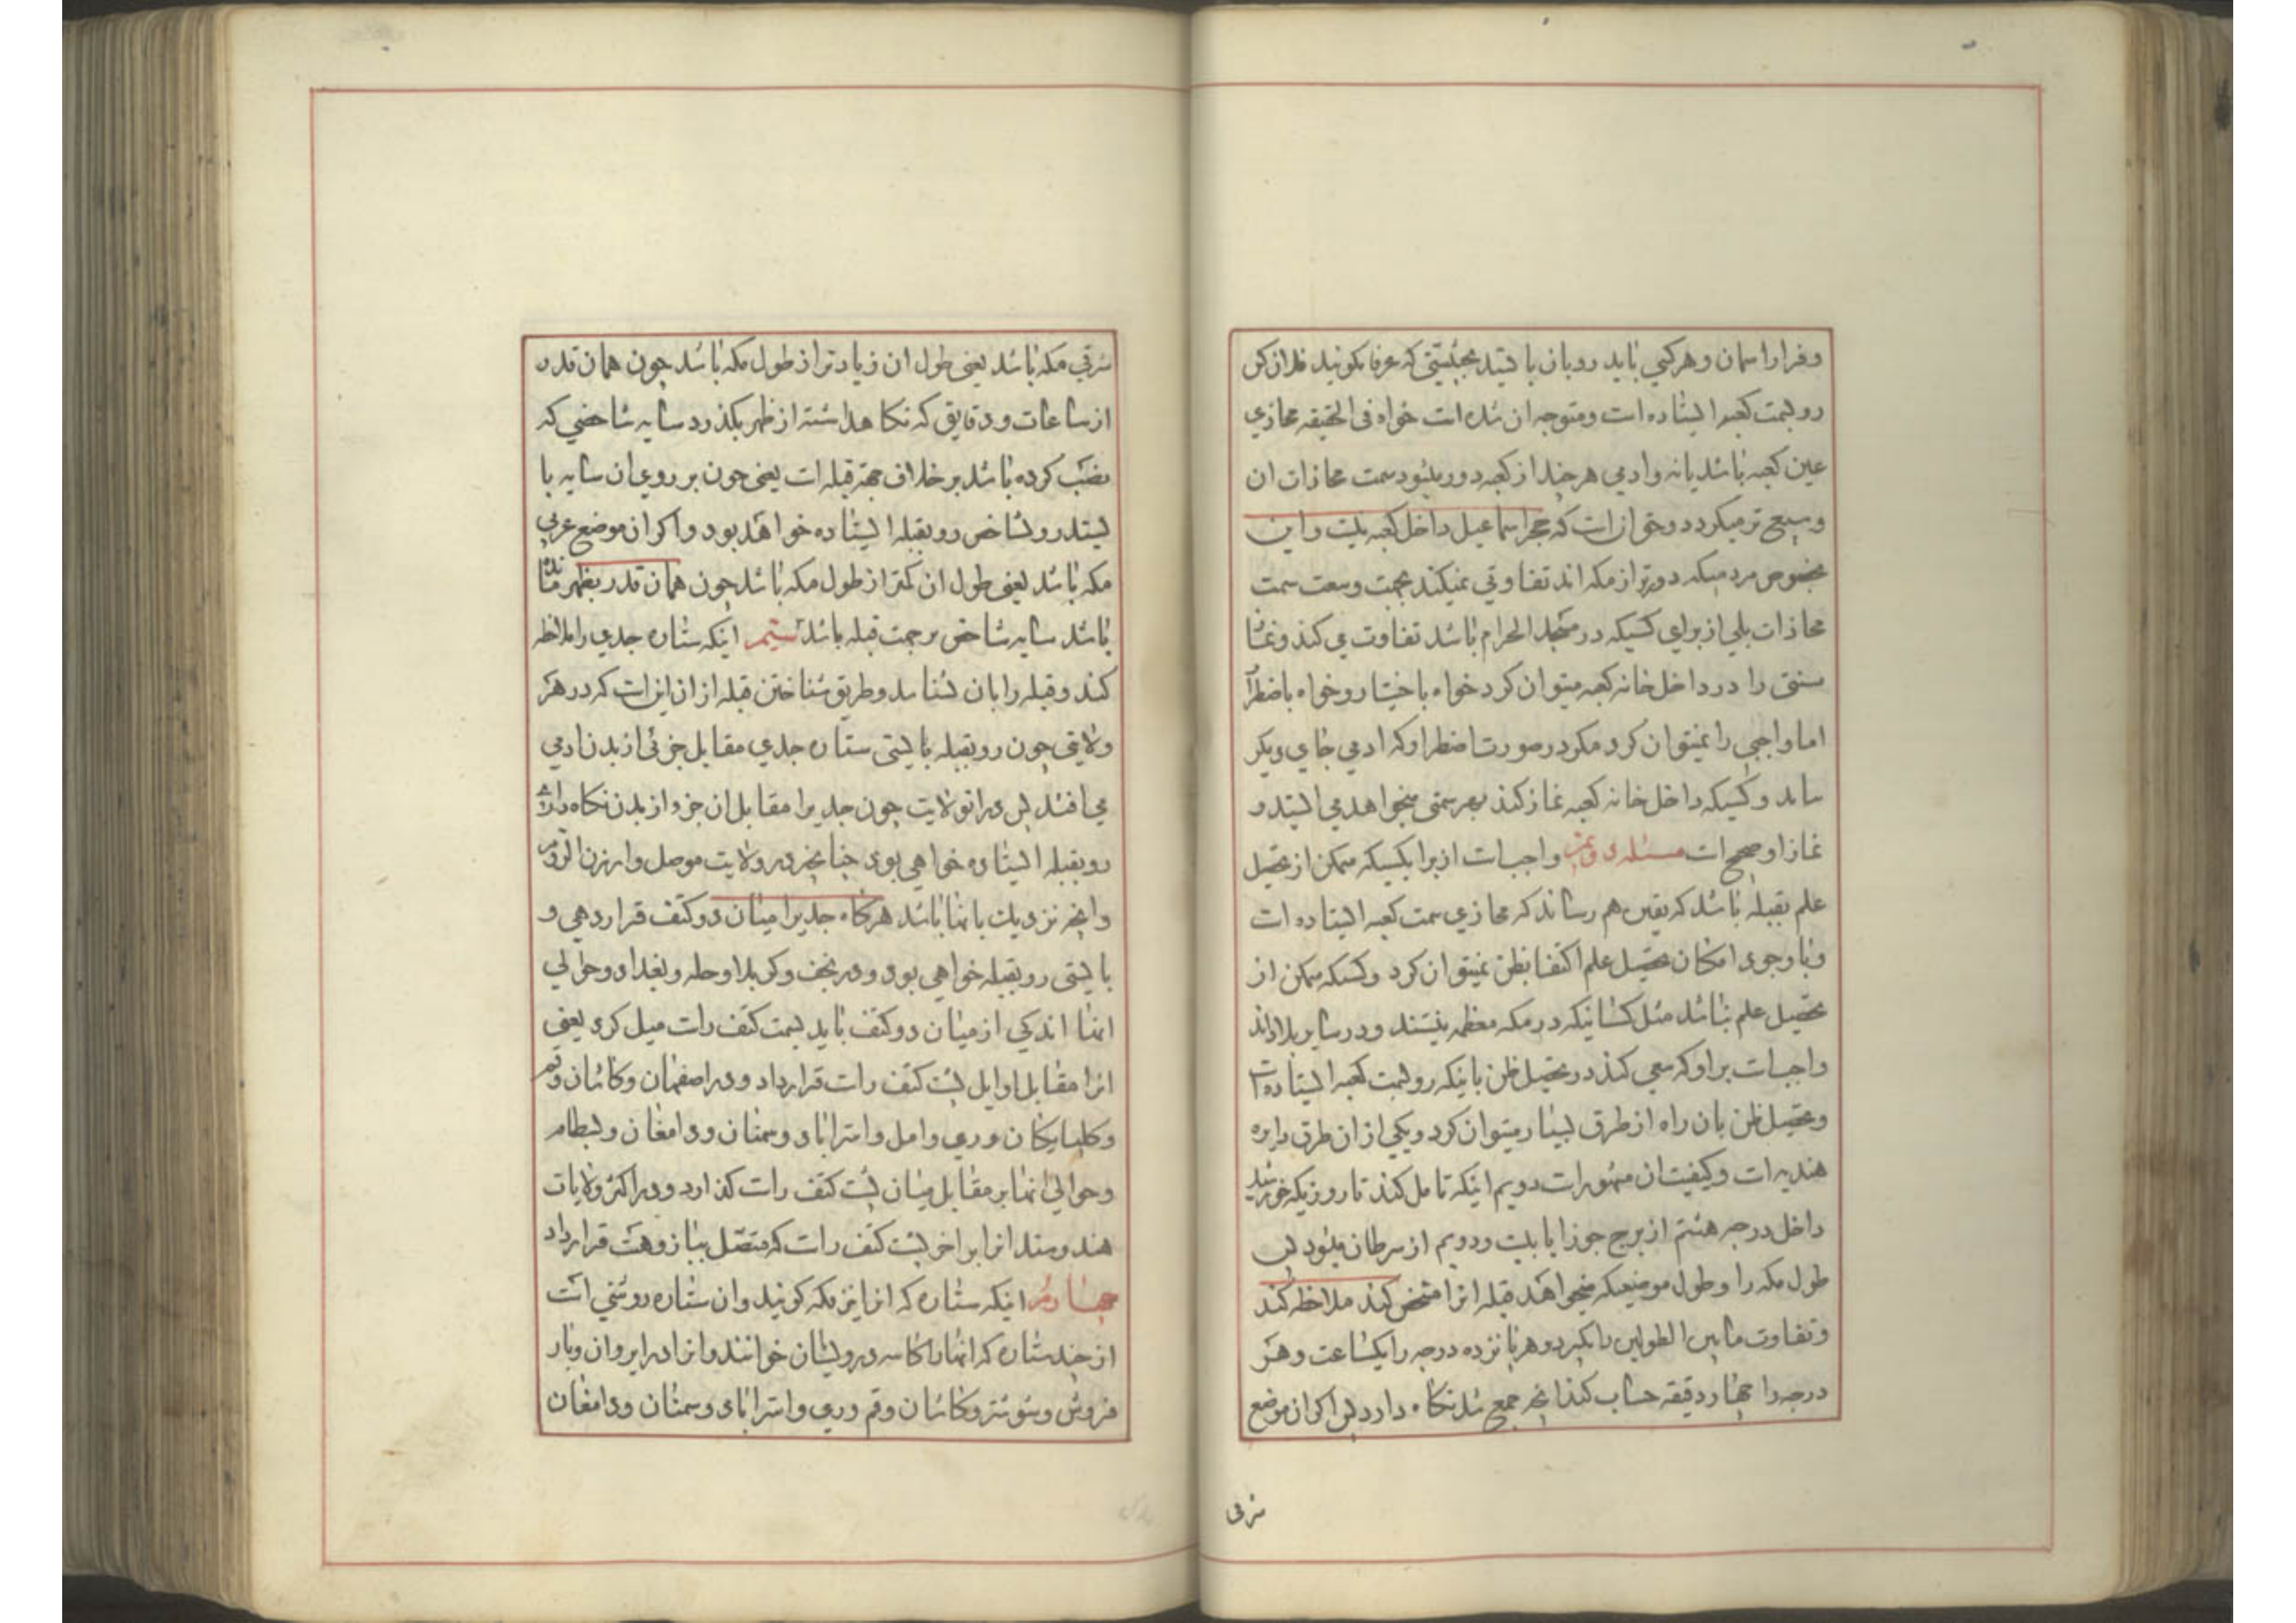 و فرار اسمان و هر کسی باید رو بان بایستد بحیثیتی که عرفا بکویند فلان کس
رو بسمت کعبه ایستاده است و متوجه ان شده است خواه فی الحقیقه محازی
عین کعبه باشد یا نه و ادمی هر چند از کعبه دور میشود سمت محازات ان
وسیع تر میکردد و حق انست که حجر اسماعیل داخل کعبه نیست و این
بخصوص مردمیکه دورتر از مکه اند تفاوتی نمیکند بجهت وسعت سمت
محاذات بلی از برای کسیکه در مسجد الحرام باشد تفاوت می کند و نماز
سنتی را در داخل خانه کعبه میتوان کرد خواه باختیار و خواه باضطرار
اما واجبی را نمیتوان کرد مکر در صورت اضطرار که ادمی جای دیکر
نیابد و کسیکه داخل خانه کعبه نماز کند بهر سمتی میخواهد می ایستد و
نماز او صحیح است مسئله دویم واجب است از برا یکسیکه متمکن از تحصیل
علم بقبله باشد که یقین بهم رساند که محازی سمت کعبه ایستاده است
و با وجود امکان تحصیل علم اکتفا بظن نمیتوان کرد و کسیکه متمکن از
تحصیل علم نباشد مثل کسانیکه در مکه معظمه نیستند و در سایر بلادند
واجب است بر او که سعی کند در تحصیل ظن باینکه رو بسمت کعبه ایستاده است
و تحصیل ظن بان راه از طرق بسیار میتوان کرد و یکی از ان طرق دایره
هندیه است و کیفیت ان مشهور است دویم اینکه تامل کند تا روزیکه خورشید
داخل درجه هشتم از برج جوزا یا بیست و دویم از سرطان میشود پس
طول مکه را و طول موضعیکه میخواهد قبله انرا مشخص کند ملاحظه کند
و تفاوت مابین الطولین را بکیرد و هر پانزده درجه را یکساعت و هر
درجه را چهار دقیقه حساب کند انچه جمع شد نکاه دارد پس اکر ان موضع
شرقی
شرقی مکه باشد یعنی طول ان زیادتر از طول مکه باشد چون همان قدر
از ساعات و دقایق که نکا هداشته از ظهر بکذرد سایه شاخصی که
نصب کرده باشد بر خلاف جهة قبله است یعنی چون بر روی ان سایه با
یستد رو بشاخص رو بقبله ایستاده خواهد بود و اکر ان موضع غربی
مکه باشد یعنی طول ان کمتر از طول مکه باشد چون همان قدر بظهر مانده
باشد سایه شاخص بر جهت قبله باشد سیم اینکه ستاره جدی را ملاحظه
کند و قبله را بان بشناسد و طریق شناختن قبله از ان اینست که در هر
ولایتی چون رو بقبله بایستی ستاره جدی مقابل جزئی از بدن ادمی
می افتد پس در انولایت چون جدیرا مقابل ان جزو از بدن نکاه داری
رو بقبله ایستاده خواهی بود چنانچه در ولایت موصل و ارزن الروم
و انچه نزدیک بانها باشد هرکاه جدیرا میان دو کتف قرار دهی و
بایستی رو بقبله خواهی بود و در نجف و کربلا و حله و بغداد و حوالی
انها اندکی از میان دو کتف باید بسمت کتف راست میل کرد یعنی
انرا مقابل اوایل پشت کتف راست قرار داد و در اصفهان و کاشان و قم
و کلپایکان و ری و امل و استراباد و سمنان و دامغان و بسطام
و حوالی انها بر مقابل میان پشت کتف راست کذارد و در اکثر ولایات
هند و سند انرا بر اخر پشت کتف راست که متصل ببازوهست قرار داد
چهارم اینکه ستاره که انرا نیز مکه کویند و ان ستاره روشنی است
از چند ستاره که انها را کاسه درویشان خوانند و انرا در ابروان و بار
فروش و شوشتر و کاشان و قم و ری و استراباد و سمنان و دامغان